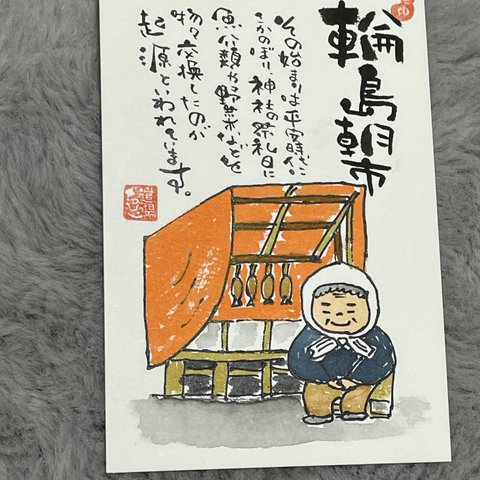 輪島朝市
その始まりは平安時代に
さかのぼり、神社の祭礼日に
魚介類や野菜などを
物々交換したのが
起源といわれています。